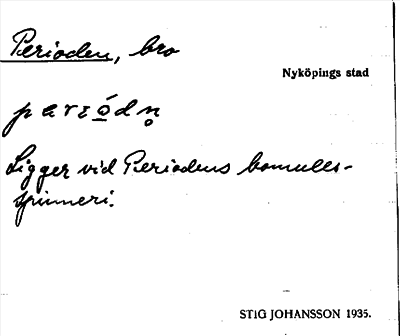 Perioden, bro
Nyköpings stad
pærıó̲dn̥
Ligger vid Periodens bomulls-
spinneri.
STIG JOHANSSON 1935.